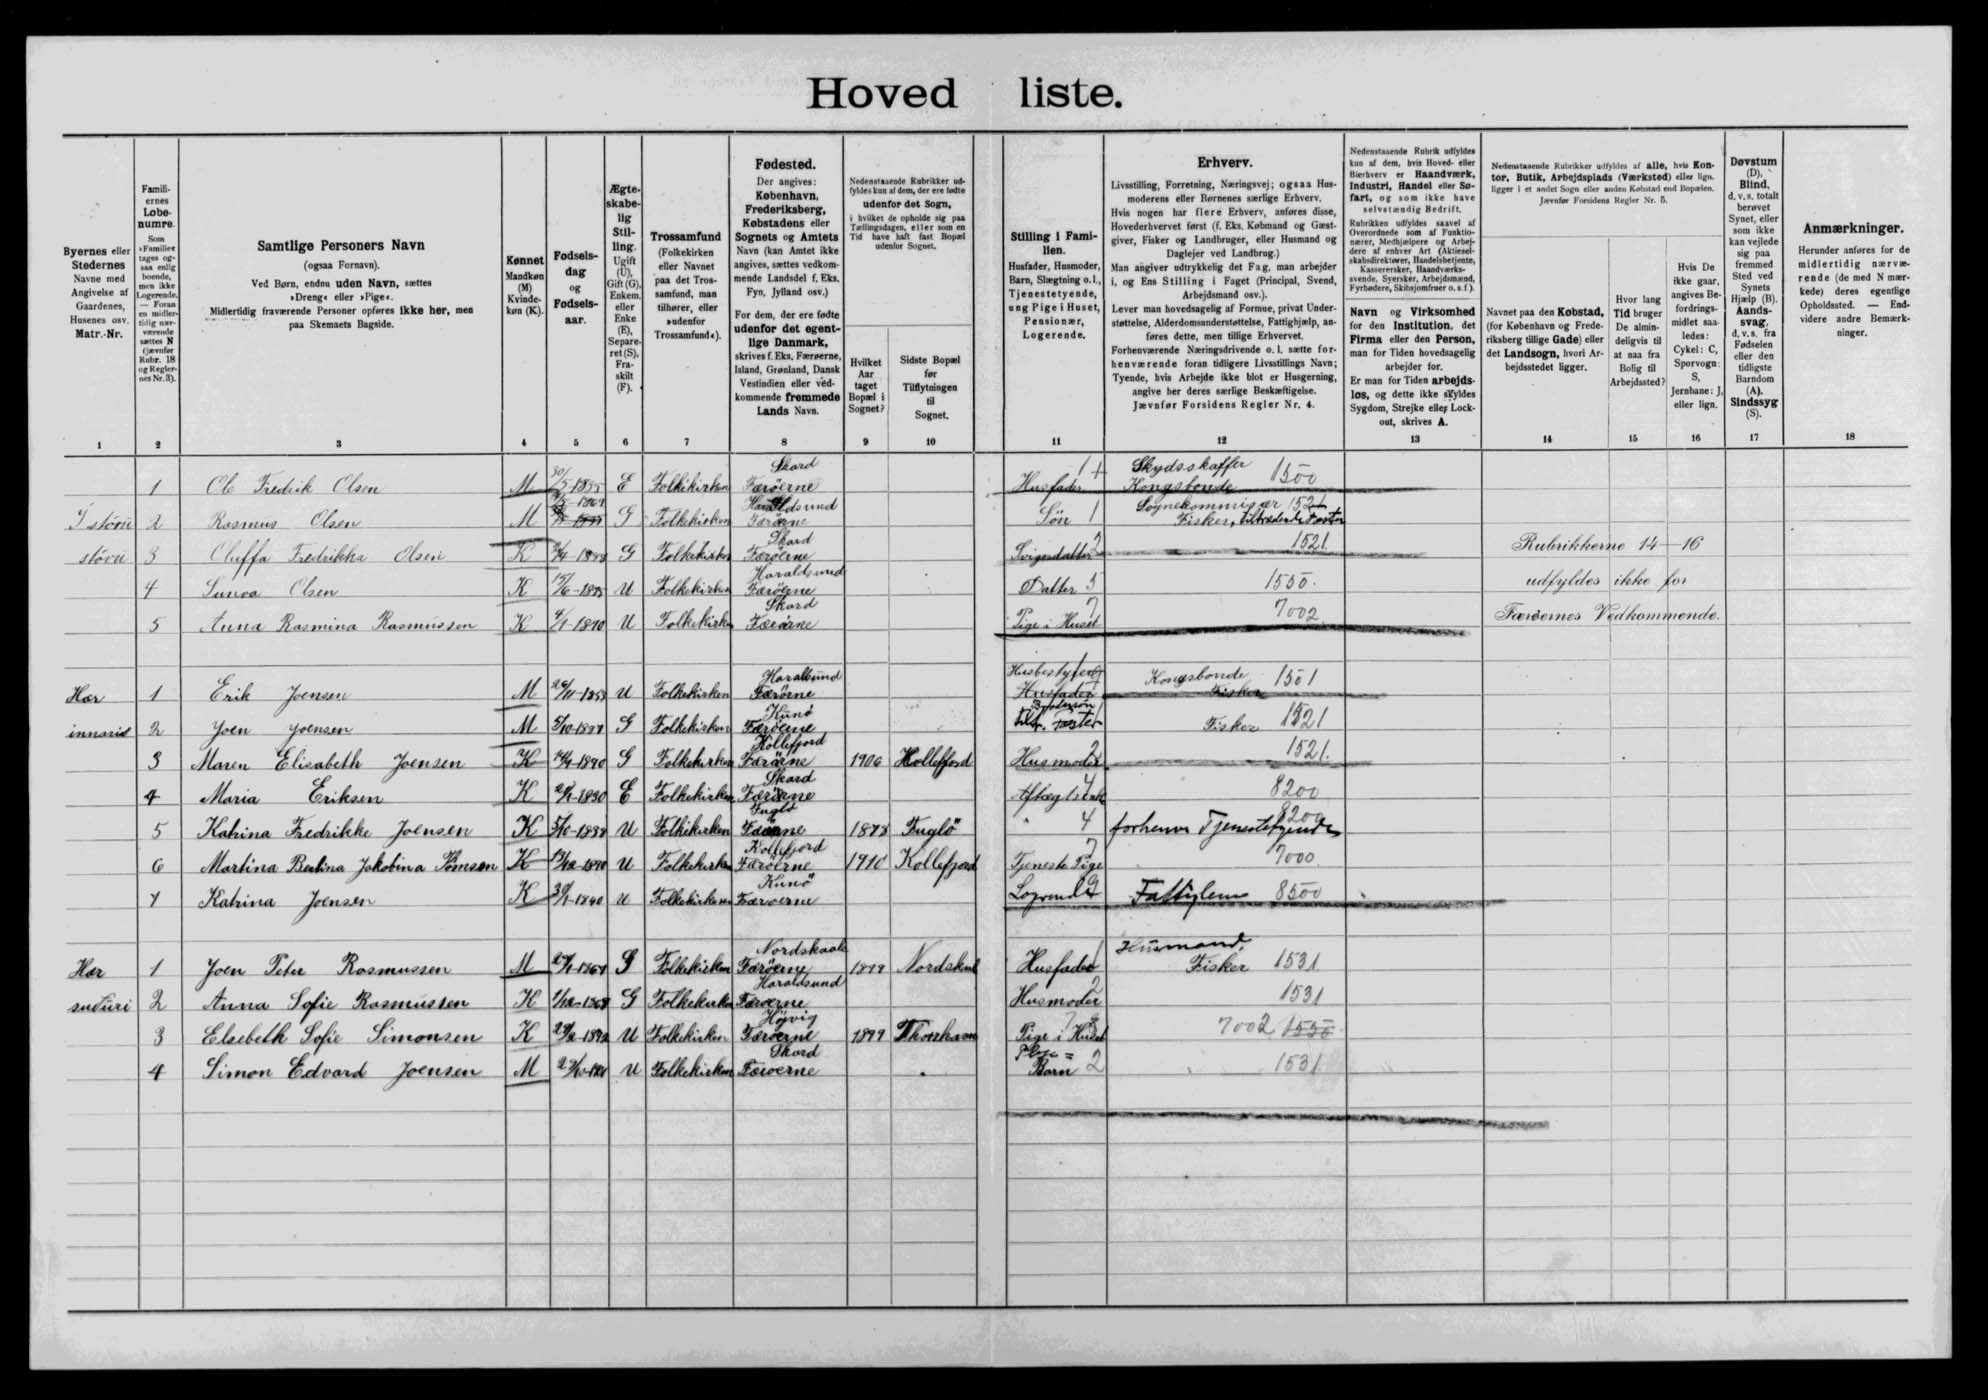 Hoved liste.
Byernes eller
Stedernes
Navne med
Angivelse af
Gaardenes,
Husenes osv.
Matr.-Nr.
1
Famili-
ernes
Løbe-
numre.
Som
»Familie«
tages og-
saa enlig
boende,
men ikke
Logerende.
— Foran
en midler-
tidig nær-
værende
sættes N
(jævnfør
Rubr. 18
og Regler-
nes Nr. 3).
2
Samtlige Personers Navn
(ogsaa Fornavn).
Ved Børn, endnu uden Navn, sættes
»Dreng« eller »Pige«.
Midlertidig fraværende Personer opføres ikke her, men
paa Skemaets Bagside.
3
Kønnet
Mandkøn
(M)
Kvinde-
køn (K).
4
Fødsels-
dag
og
Fødsels-
aar.
5
Ægte-
skabe-
lig
Stil-
ling.
Ugift
(U),
Gift (G),
Enkem.
eller
Enke
(E),
Separe-
ret (S),
Fra-
skilt
(F).
6
Trossamfund
(Folkekirken
eller Navnet
paa det Tros-
samfund, man
tilhører, eller
»udenfor
Trossamfund«).
7
Fødested.
Der angives:
København,
Frederiksberg,
Købstadens eller
Sognets og Amtets
Navn (kan Amtet ikke
angives, sættes vedkom-
mende Landsdel f. Eks.
Fyn, Jylland osv.)
For dem, der ere fødte
udenfor det egent-
lige Danmark,
skrives f. Eks. Færøerne,
Island, Grønland, Dansk
Vestindien eller ved-
kommende fremmede
Lands Navn.
8
Nedenstaaende Rubrikker ud-
fyldes kun af dem, der ere fødte
udenfor det Sogn,
i hvilket de opholde sig paa
Tællingsdagen, eller som en
Tid have haft fast Bopæl
udenfor Sognet.
Hvilket
Aar
taget
Bopæl i
Sognet?
9
Sidste Bopæl
før
Tilflytningen
til
Sognet.
10
Stilling i Fami-
lien.
Husfader, Husmoder,
Barn, Slægtning o. l.,
Tjenestetyende,
ung Pige i Huset,
Pensionær,
Logerende.
11
Erhverv.
Livsstilling, Forretning, Næringsvej; ogsaa Hus-
moderens eller Børnenes særlige Erhverv.
Hvis nogen har flere Erhverv, anføres disse,
Hovederhvervet først (f. Eks. Købmand og Gæst-
giver, Fisker og Landbruger, eller Husmand og
Daglejer ved Landbrug.)
Man angiver udtrykkelig det Fag, man arbejder
i, og Ens Stilling i Faget (Principal, Svend,
Arbejdsmand osv.).
Lever man hovedsagelig af Formue, privat Under-
støttelse, Alderdomsunderstøttelse, Fattighjælp, an-
føres dette, men tillige Erhvervet.
Forhenværende Næringsdrivende o. l. sætte for-
henværende foran tidligere Livsstillings Navn;
Tyende, hvis Arbejde ikke blot er Husgerning,
angive her deres særlige Beskæftigelse.
Jævnfør Forsidens Regler Nr. 4.
12
Nedenstaaende Rubrik udfyldes
kun af dem, hvis Hoved- eller
Bierhverv er Haandværk,
Industri, Handel eller Sø-
fart, og som ikke have
selvstændig Bedrift.
Rubrikken udfyldes saavel af
Overordnede som af Funktio-
nærer, Medhjælpere og Arbej-
dere af enhver Art (Aktiesel-
skabsdirektører, Handelsbetjente,
Kasserersker, Haandværks-
svende, Syersker, Arbejdsmænd,
Fyrbødere, Skibsjomfruer o. s. f.).
Navn og Virksomhed
for den Institution, det
Firma eller den Person,
man for Tiden hovedsagelig
arbejder for.
Er man for Tiden arbejds-
løs, og dette ikke skyldes
Sygdom, Strejke eller Lock-
out, skrives A.
13
Nedenstaaende Rubrikker udfyldes af alle, hvis Kon-
tor, Butik, Arbejdsplads (Værksted) eller lign.
ligger i et andet Sogn eller anden Købstad end Bopælen.
Jævnfør Forsidens Regler Nr. 5.
Navnet paa den Købstad,
(for København og Frede-
riksberg tillige Gade) eller
det Landsogn, hvori Ar-
bejdsstedet ligger.
14
Hvor lang
Tid bruger
De almin-
deligvis til
at naa fra
Bolig til
Arbejdssted?
15
Hvis De
ikke gaar,
angives Be-
fordrings-
midlet saa-
ledes:
Cykel: C,
Sporvogn:
S,
Jernbane: J,
eller lign.
16
Døvstum
(D),
Blind,
d. v. s. totalt
berøvet
Synet, eller
som ikke
kan vejlede
sig paa
fremmed
Sted ved
Synets
Hjælp (B).
Aands-
svag,
d. v. s. fra
Fødselen
eller den
tidligste
Barndom
(A).
Sindssyg
(S).
17
Anmærkninger.
Herunder anføres for de
midlertidig nærvæ-
rende (de med N mær-
kede) deres egentlige
Opholdssted. — End-
videre andre Bemærk-
ninger.
18
1 Ole Fredrik Olsen M 30/5-1835 E Folkekirken Skard Færöerne Husfader 1 Skydsskaffer Kongsbonde 1500
Í stóru 2 Rasmus Olsen M G Folkekirken Haraldsund Færöerne Søn 1 Sognekommisær 1521 Fisker, tiltrædende Fæster
stóvu 3 Oluffa Fredrikka Olsen K G Folkekirken Skard Færöerne Svigerdatter 1521. Rubrikkerne 14–16
4 Sunva Olsen K U Folkekirken Haraldsund Færöerne Datter 5 1550. udfyldes ikke for
5 Anna Rasmina Rasmussen K 4/1-1890 U Folkekirken Skard Færöerne Pige i Huset 7 7002 Færöernes Vedkommende.
Hær 1 Erik Joensen M U Folkekirken Haraldsund Færöerne Husbestyrer Husfader Kongsbonde 1501 Fisker
innaris 2 Joen Joensen M G Folkekirken Kunö Færöerne Brodersøn Fisker 1521
3 Maren Elisabeth Joensen K G Folkekirken Kollefjord Færöerne 1906 Kollefjord Husmoder 2 1521.
4 Maria Eriksen K E Folkekirken Skard Færöerne Aftægtsenke 4 8200
5 Katrina Fredrikke Joensen K U Folkekirken Fuglö Færöerne Fuglö " 4 forhenv Tjenestetyende 8200
6 Martina Bertina Jakobina K U Folkekirken Kollefjord Færöerne 1910 Kollefjord Tjeneste Pige 7 7000
7 Katrina Joensen K U Folkekirken Kunö Færöerne Fattiglem 8500
Hær 1 Joen Peter Rasmussen M G Folkekirken Færöerne 1899 Husfader 1 Husmand, Fisker 1531
suđuri 2 Anna Sofie Rasmussen K G Folkekirken Haraldsund Færöerne Husmoder 2 1531
3 Elsebeth Sofie Simonsen K U Folkekirken Höjvig Færöerne 1899 Thorshavn Pige i Huset 7002 1550
4 Simon Edvard Joensen M U Folkekirken Skard Færöerne Pleje= Barn 2 1531